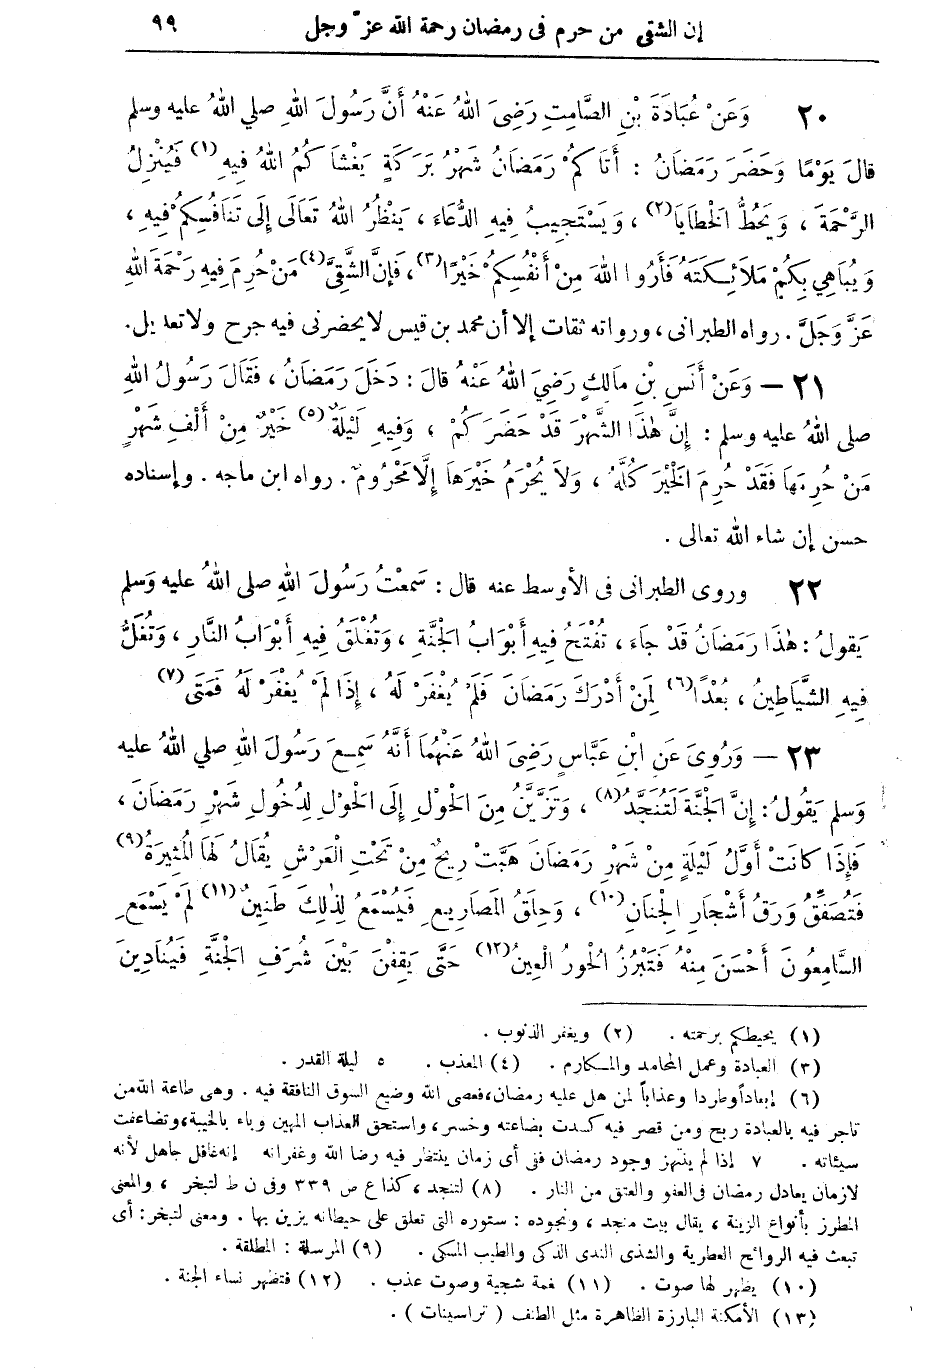 إن الشقي من حرم فى رمضان رحمة الله عزّ وجل ٩٩
٢٠ وَعَنْ عُبَادَةَ بْنِ الصَّامِتِ رَضِىَ اللهُ عَنْهُ أَنَّ رَسُولَ اللهِ صلي اللهُ عليه وسلم
قالَ يَوْمًا وَحَضَرَ رَمَضَانُ : أَتَاكُمْ رَمَضَانُ شَهْرُ بَرَكَةٍ يَغْشَاكُمُ اللهُ فِيهِ (١) فَيُنْزِلُ
الرَّحْمَةَ ، وَيَحُطُّ الْخَطَايَا (٢) ، وَيَسْتَجِيبُ فِيهِ الدُّعَاءَ ، يَنْظُرُ اللهُ تَعَالَى إِلَى تَنَافُسِكُمْ فِيهِ ،
وَيُبَاهِي بِكُمْ مَلَائِكَتَهُ فَأَرُوا اللهَ مِنْ أَنْفُسِكُمْ خَيْرًا (٣) ، فَإِنَّ الشَّقِيَّ (٤) مَنْ حُرِمَ فِيهِ رَحْمَةَ اللهِ
عَزَّ وَجَلَّ . رواه الطبرانى ، ورواته ثقات إلا أن محمد بن قيس لا يحضرنى فيه جرح ولا تعديل .
٢١ – وَعَنْ أَنَسِ بْنِ مالِكٍ رَضِيَ اللهُ عَنْهُ قالَ : دَخَلَ رَمَضَانُ ، فَقَالَ رَسُولُ اللهِ
صلى اللهُ عليه وسلم : إِنَّ هٰذَا الشَّهْرَ قَدْ حَضَرَكُمْ ، وَفِيهِ لَيْلَةٌ (٥) خَيْرٌ مِنْ أَلْفِ شَهْرٍ
مَنْ حُرِمَهَا فَقَدْ حُرِمَ الْخَيْرَ كُلَّهُ ، وَلَا يُحْرَمُ خَيْرَهَا إِلَّا مَحْرُومٌ . رواه ابن ماجه . وإسناده
حسن إن شاء الله تعالى .
٢٢ وروى الطبرانى فى الأوسط عنه قال : سَمِعْتُ رَسُولَ اللهِ صلى اللهُ عليه وَسلم
يَقُولُ : هٰذَا رَمَضَانُ قَدْ جَاءَ ، تُفْتَحُ فِيهِ أَبْوَابُ الْجَنَّةِ ، وَتُغْلَقُ فِيهِ أَبْوَابُ النَّارِ ، وَتُغَلُّ
فِيهِ الشَّيَاطِينُ ، بُعْدًا (٦) لِمَنْ أَدْرَكَ رَمَضَانَ فَلَمْ يُغْفَرْ لَهُ ، إِذَا لَمْ يُغْفَرْ لَهُ فَمَتَى (٧)
٢٣ – وَرُوِىَ عَنِ ابْنِ عَبَّاسٍ رَضِىَ اللهُ عَنْهُمَا أَنَّهُ سَمِعَ رَسُولَ اللهِ صلي اللهُ عليه
وَسلم يَقُولُ : إِنَّ الْجَنَّةَ لَتُنَجَّدُ (٨) ، وَتَزَيَّنُ مِنَ الْحَوْلِ إِلَى الْحَوْلِ لِدُخُولِ شَهْرِ رَمَضَانَ ،
فَإِذَا كانَتْ أَوَّلُ لَيْلَةٍ مِنْ شَهْرِ رَمَضَانَ هَبَّتْ رِيحٌ مِنْ تَحْتِ الْعَرْشِ يُقَالُ لَهَا الْمُثِيرَةُ (٩)
فَتُصَفِّقُ وَرَقُ أَشْجَارِ الْجِنَانِ (١٠) ، وَحِلَقُ الْمَصَارِيعِ فَيُسْمَعُ لِذٰلِكَ طَنِينٌ (١١) لَمْ يَسْمَعِ
السَّامِعُونَ أَحْسَنَ مِنْهُ فَتَبْرُزُ الْحُورُ الْعِينُ (١٢) حَتَّى يَقِفْنَ بَيْنَ شُرَفِ الْجَنَّةِ فَيُنَادِينَ
(١) يحيطكم برحمته . (٢) ويغفر الذنوب .
(٣) العبادة وعمل المحامد والمكارم . (٤) المعذب . ٥ ليلة القدر .
(٦) إبعاداً وطردا وعذاباً لمن هل عليه رمضان ، فعصى الله وضيع السوق النافقة فيه . وهى طاعة الله من
تاجر فيه بالعبادة ربح ومن قصر فيه كسدت بضاعته وخسر ، واستحق العذاب المهين وباء بالخيبة ، وتضاعفت
سيئاته . ٧ إذا لم ينتهز وجود رمضان فى أى زمان ينتظر فيه رضا الله وغفرانه إنه غافل جاهل لأنه
لازمان يعادل رمضان فى العفو والعتق من النار . (٨) لتنجد ، كذا ع ص ٣٣٩ وفى ن ط لتبخر ، والمعنى
المطرز بأنواع الزينة ، يقال بيت منجد ، ونجوده : ستوره التى تعلق على حيطانه يزين بها . ومعنى لتبخر : أى
تبعث فيه الروائح العطرية والشذى الندى الذكى والطيب المسكى . (٩) المرسلة : المطلقة .
(١٠) يظهر لها صوت . (١١) نغمة شجية وصوت عذب . (١٢) فتظهر نساء الجنة .
(١٣) الأمكنة البارزة الظاهرة مثل الطنف ( تراسينات ) .